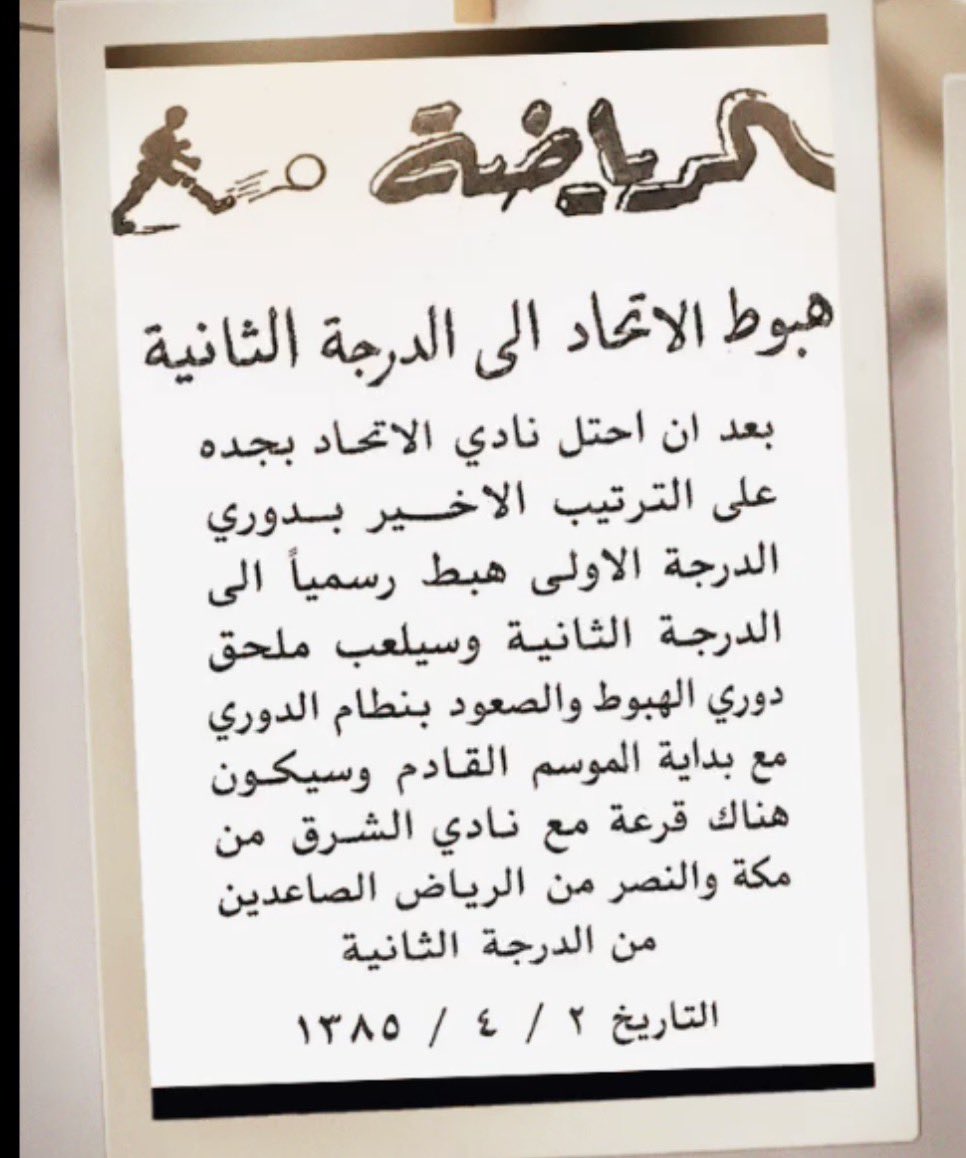 الرياضة
هبوط الاتحاد الى الدرجة الثانية
بعد ان احتل نادي الاتحاد بجده
على الترتيب الاخير بدوري
الدرجة الاولى هبط رسمياً الى
الدرجة الثانية وسيلعب ملحق
دوري الهبوط والصعود بنطام الدوري
مع بداية الموسم القادم وسيكون
هناك قرعة مع نادي الشرق من
مكة والنصر من الرياض الصاعدين
من الدرجة الثانية
التاريخ ٢ / ٤ / ١٣٨٥